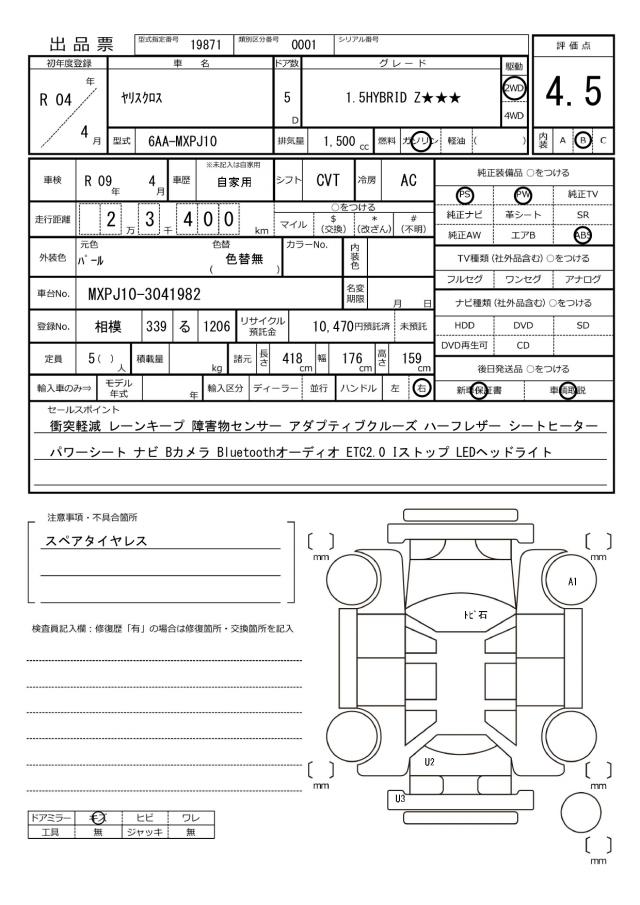 出品票 型式指定番号 19871 類別区分番号 0001 シリアル番号
評価点
4.5
内装 A B C
初年度登録 車名 ドア数 グレード 駆動
R 04 年 4 月
ヤリスクロス 5 D 1.5HYBRID Z★★★ 2WD
4WD
型式 6AA-MXPJ10 排気量 1,500 cc 燃料 ガソリン 軽油 ( )
車検 R 09 年 4 月 車歴 ※未記入は自家用 自家用 シフト CVT 冷房 AC
走行距離 2 3 4 0 0 万 千 km
○をつける
マイル $(交換) *(改ざん) #(不明)
外装色 元色 パール 色替 ( 色替無 ) カラーNo. 内装色
車台No. MXPJ10-3041982 名変期限 月 日
登録No. 相模 339 る 1206 リサイクル預託金 10,470円預託済 未預託
定員 5( ) 人 積載量 kg 諸元 長さ 418 cm 幅 176 cm 高さ 159 cm
輸入車のみ⇒ モデル年式 年 輸入区分 ディーラー 並行 ハンドル 左 右
純正装備品 ○をつける
PS PW 純正TV
純正ナビ 革シート SR
純正AW エアB ABS
TV種類(社外品含む)○をつける
フルセグ ワンセグ アナログ
ナビ種類(社外品含む)○をつける
HDD DVD SD
DVD再生可 CD
後日発送品 ○をつける
新車保証書 車輌取説
セールスポイント
衝突軽減 レーンキープ 障害物センサー アダプティブクルーズ ハーフレザー シートヒーター
パワーシート ナビ Bカメラ Bluetoothオーディオ ETC2.0 Iストップ LEDヘッドライト
注意事項・不具合箇所
スペアタイヤレス
検査員記入欄:修復歴「有」の場合は修復箇所・交換箇所を記入
ドアミラー キズ ヒビ ワレ
工具 無 ジャッキ 無
〔 〕 mm
〔 〕 mm
A1
トビ石
U2
〔 〕 mm
〔 〕 mm
U3
〔 〕 mm